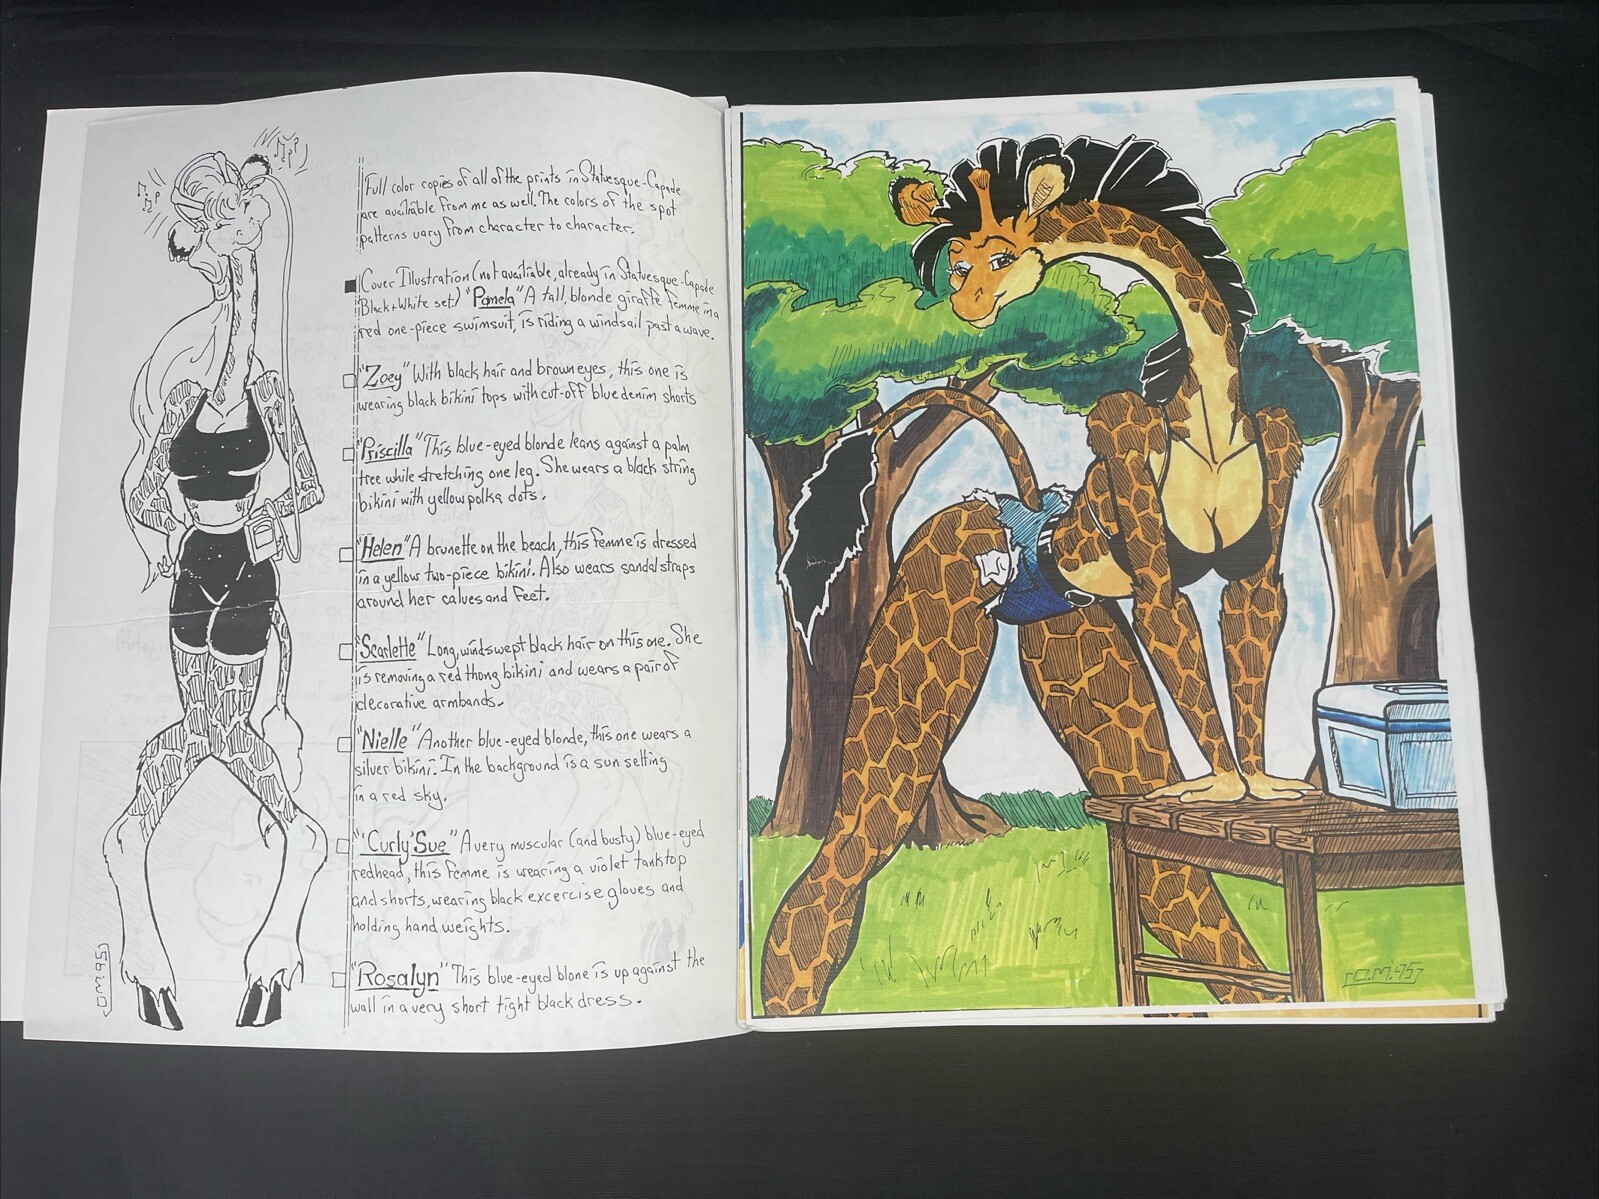 Full color copies of all of the prints in Statuesque-Capade
are availiable from me as well. The colors of the spot
patterns vary from character to character.
Cover Illustration (not availiable, already in Statuesque-Capade
Black+White set) "Pamela" A tall, blonde giraffe femme in a
red one-piece swimsuit, is riding a windsail past a wave.
"Zoey" With black hair and brown eyes, this one is
wearing black bikini tops with cut-off blue denim shorts
"Priscilla" This blue-eyed blonde leans against a palm
tree while stretching one leg. She wears a black string
bikini with yellow polka dots.
"Helen" A brunette on the beach, this femme is dressed
in a yellow two-piece bikini. Also wears sandal straps
around her calves and feet.
"Scarlette" Long, windswept black hair on this one. She
is removing a red thong bikini and wears a pair of
decorative armbands.
"Nielle" Another blue-eyed blonde, this one wears a
silver bikini. In the background is a sun setting
in a red sky.
"'Curly' Sue" A very muscular (and busty) blue-eyed
redhead, this femme is wearing a violet tanktop
and shorts, wearing black excercise gloves and
holding hand weights.
"Rosalyn" This blue-eyed blone is up against the
wall in a very short tight black dress.
O.M.95
O.M.95